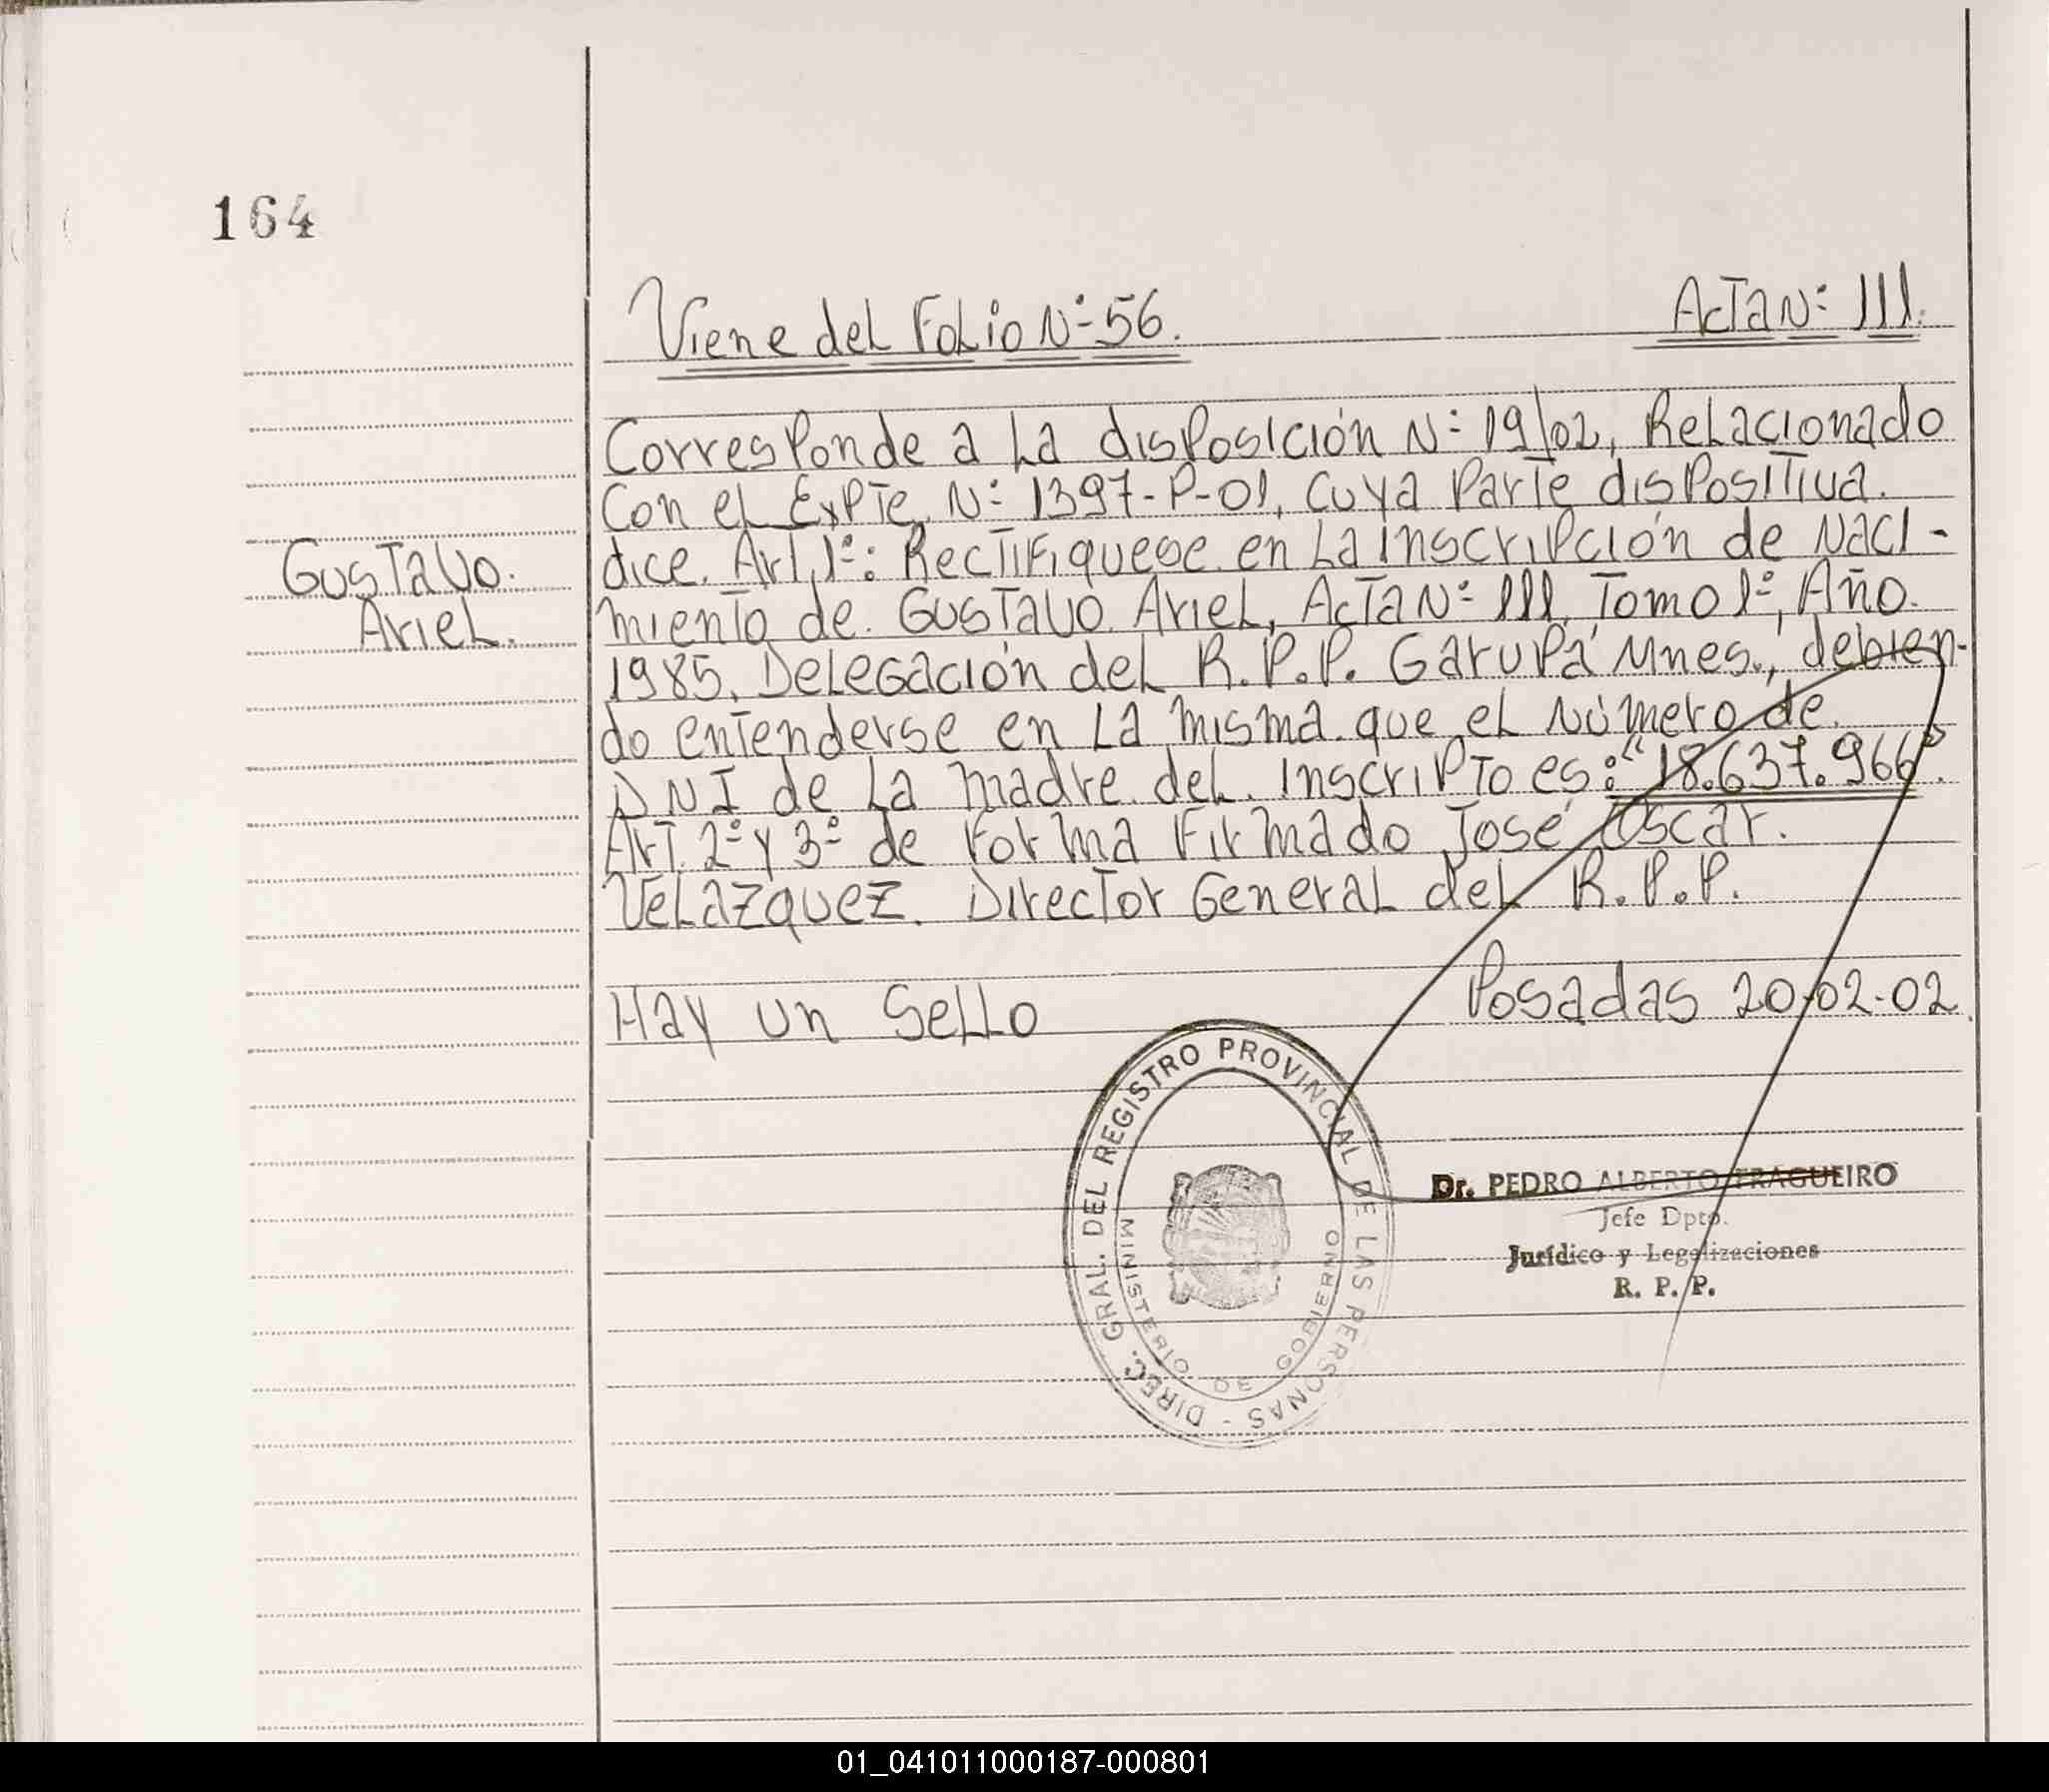 164
Viene del Folio Nº 56. Acta Nº 111.
Corresponde a La disposición Nº 19/02, Relacionado
Con el Expte. Nº 1397-P-01, cuya Parte dispositiva.
dice. Art. 1º: Rectifiquese en La Inscripción de Naci-
Gustavo.
Ariel.
miento de. Gustavo Ariel, Acta Nº 111, Tomo 1º, Año.
1985, Delegación del R.P.P. Garupá Mnes., debien-
do entenderse en La misma que el Número de.
DNI de La madre del. Inscripto es: "18.637.966".
Art. 2º y 3º de Forma Firmado José Oscar.
Velazquez. Director General del R.P.P.
Hay un Sello Posadas 20-02-02.
DIREC. GRAL. DEL REGISTRO PROVINCIAL DE LAS PERSONAS -
MINISTERIO DE GOBIERNO
Dr. PEDRO ALBERTO FRAGUEIRO
Jefe Dpto.
Jurídico y Legalizaciones
R. P. P.
01_041011000187-000801